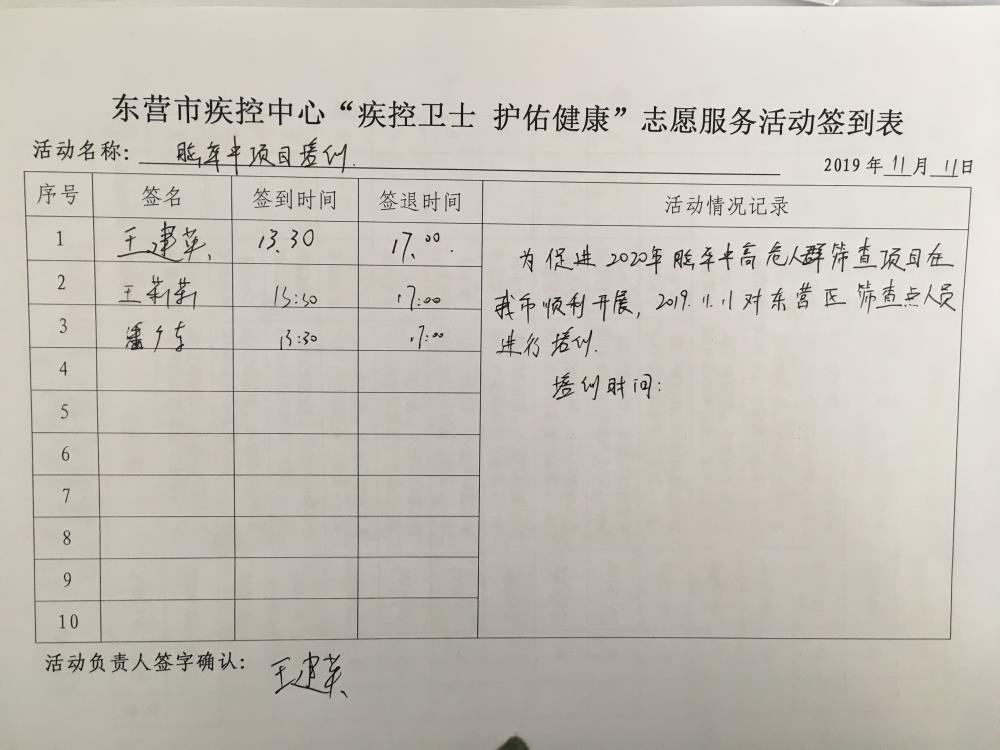 东营市疾控中心“疾控卫士 护佑健康”志愿服务活动签到表
活动名称: 脑卒中项目培训.
2019年11月11日
序号 签名 签到时间 签退时间 活动情况记录
1 王建英 13.30 17.00.
2 王莉莉 13:30 17:00
3 潘 13:30 17:00
4
5
6
7
8
9
10
为促进2020年脑卒中高危人群筛查项目在
我市顺利开展, 2019.11.11对东营区筛查点人员
进行培训.
培训时间:
活动负责人签字确认: 王建英